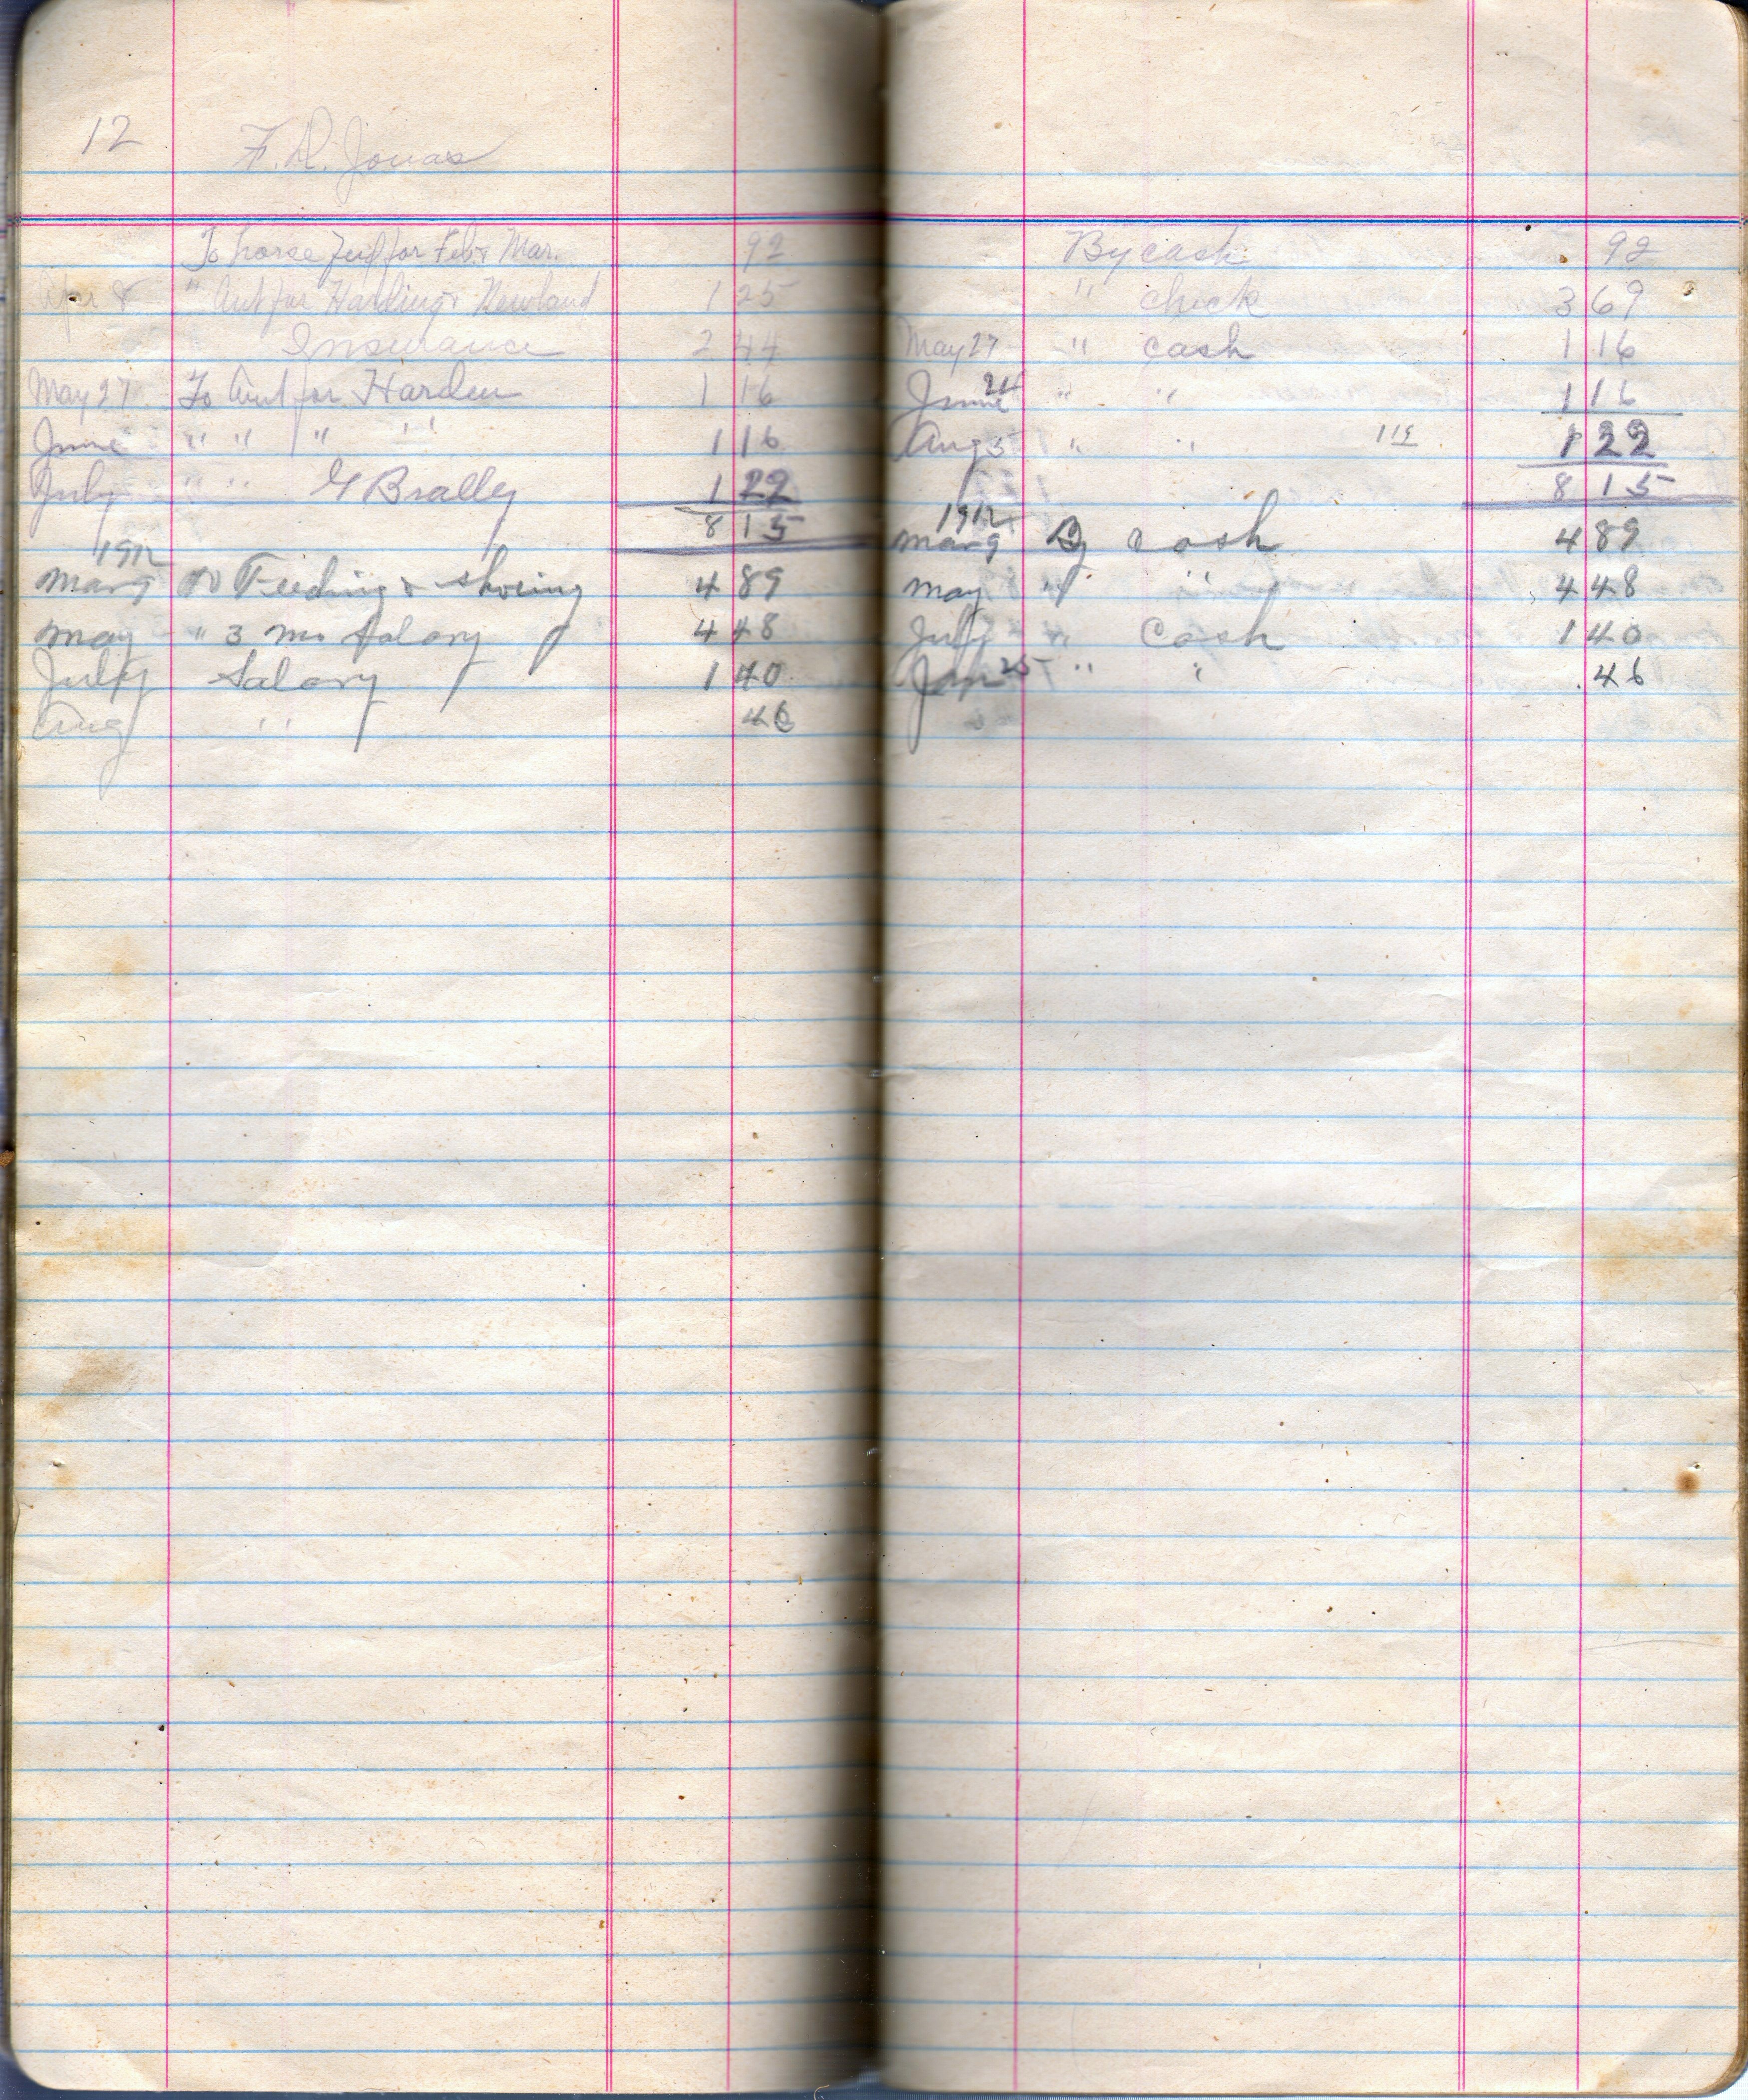 12 F. D. Jonas
To horse feed for Feb. & Mar. 92
Apr 8 " Amt for Harding & Newland 1 25
Insurance 2 44
May 27 To Amt for Harden 1 16
June " " " " 1 16
July " " G Bralley 1 22
8 15
1912
Mar 9 To Feeding & Shoeing 4 89
May " 3 mo Salary 4 48
July Salary 1 40
Aug " 46
By cash 92
" check 3 69
May 27 " Cash 1 16
June 24 " " 1 16
Aug 5 " " 1 22
8 15
1912
Mar 9 By Cash 4 89
May " " 4 48
July " Cash 1 40
Jan 25 " " .46